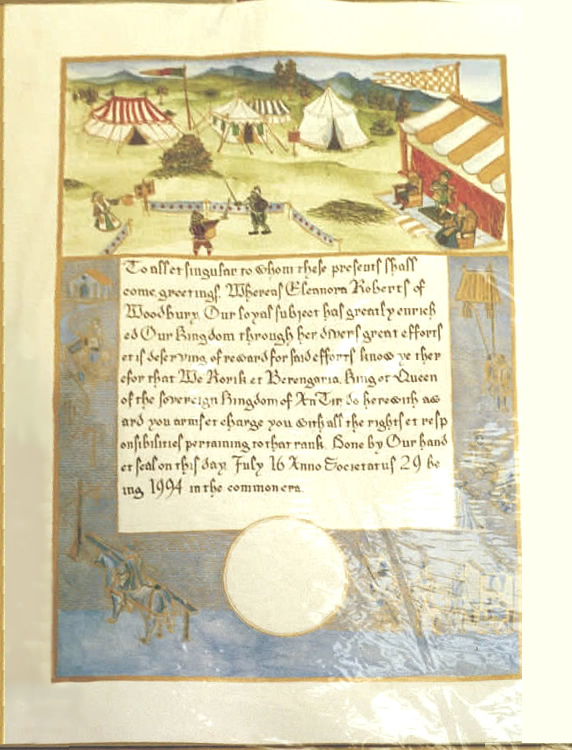 To all et singular to whom these presents shall
come, greetings. Whereas Eleanora Roberts of
Woodbury, Our loyal subject has greatly enrich
ed Our Kingdom through her divers great efforts
et is deserving of reward for said efforts know ye ther
efor that We Rorik et Berengaria, King et Queen
of the sovereign Kingdom of AnTir do herewith aw
ard you arms et charge you with all the rights et resp
onsibilities pertaining to that rank. Done by Our hand
et seal on this day July 16 Anno Societatus 29 be
ing 1994 in the common era.